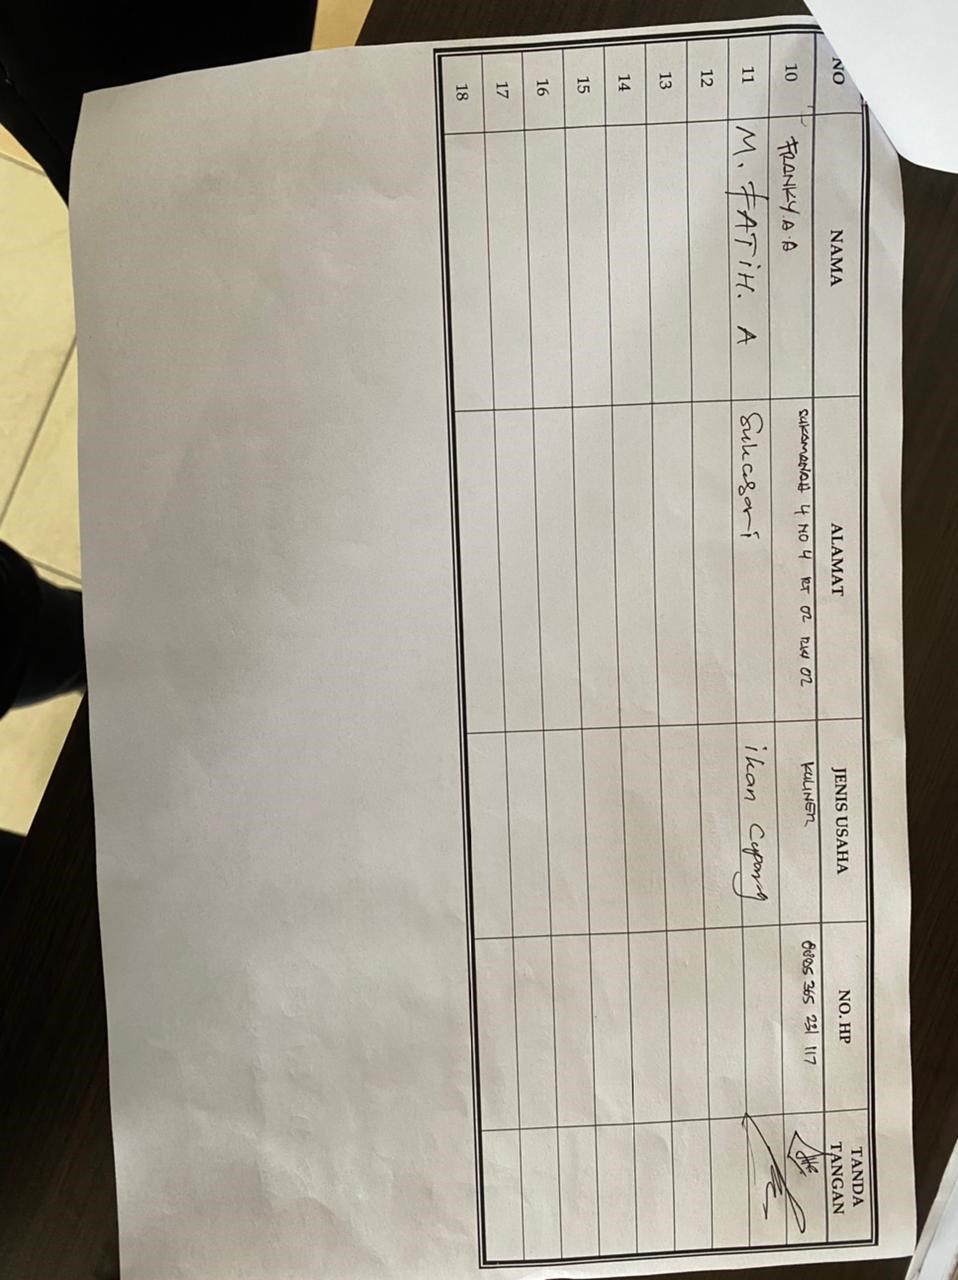 NO NAMA ALAMAT JENIS USAHA NO. HP TANDA TANGAN
10 FRANKY. A. A SUKAMANAH 4 NO 4 RT 02 RW 02 KULINER 0895 365 231 117
11 M. FATIH. A Sukasari ikan Cupang
12
13
14
15
16
17
18